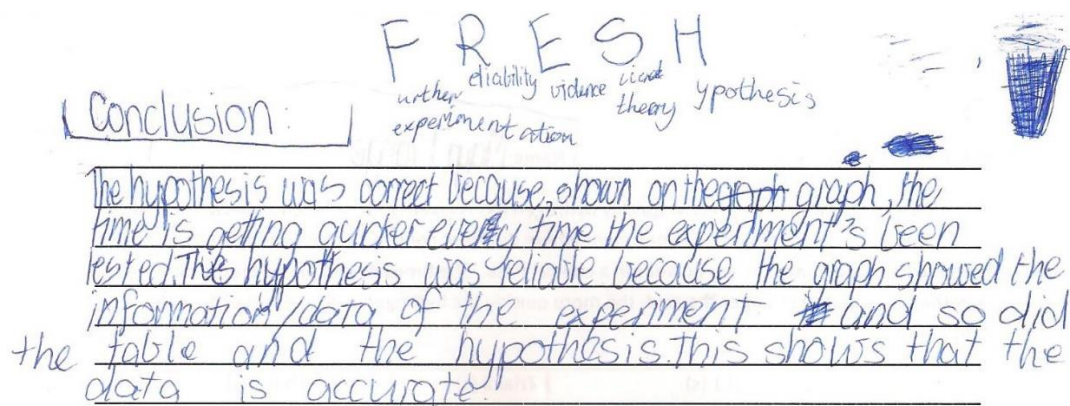 F R E S H
urther eliability vidence theory ypothesis
experimentation
Conclusion:
The hypothesis was correct because, shown on the graph graph, the
time is getting quicker every time the experiment's been
tested. This hypothesis was reliable because the graph showed the
information/data of the experiment and so did
the table and the hypothesis. this shows that the
data is accurate.